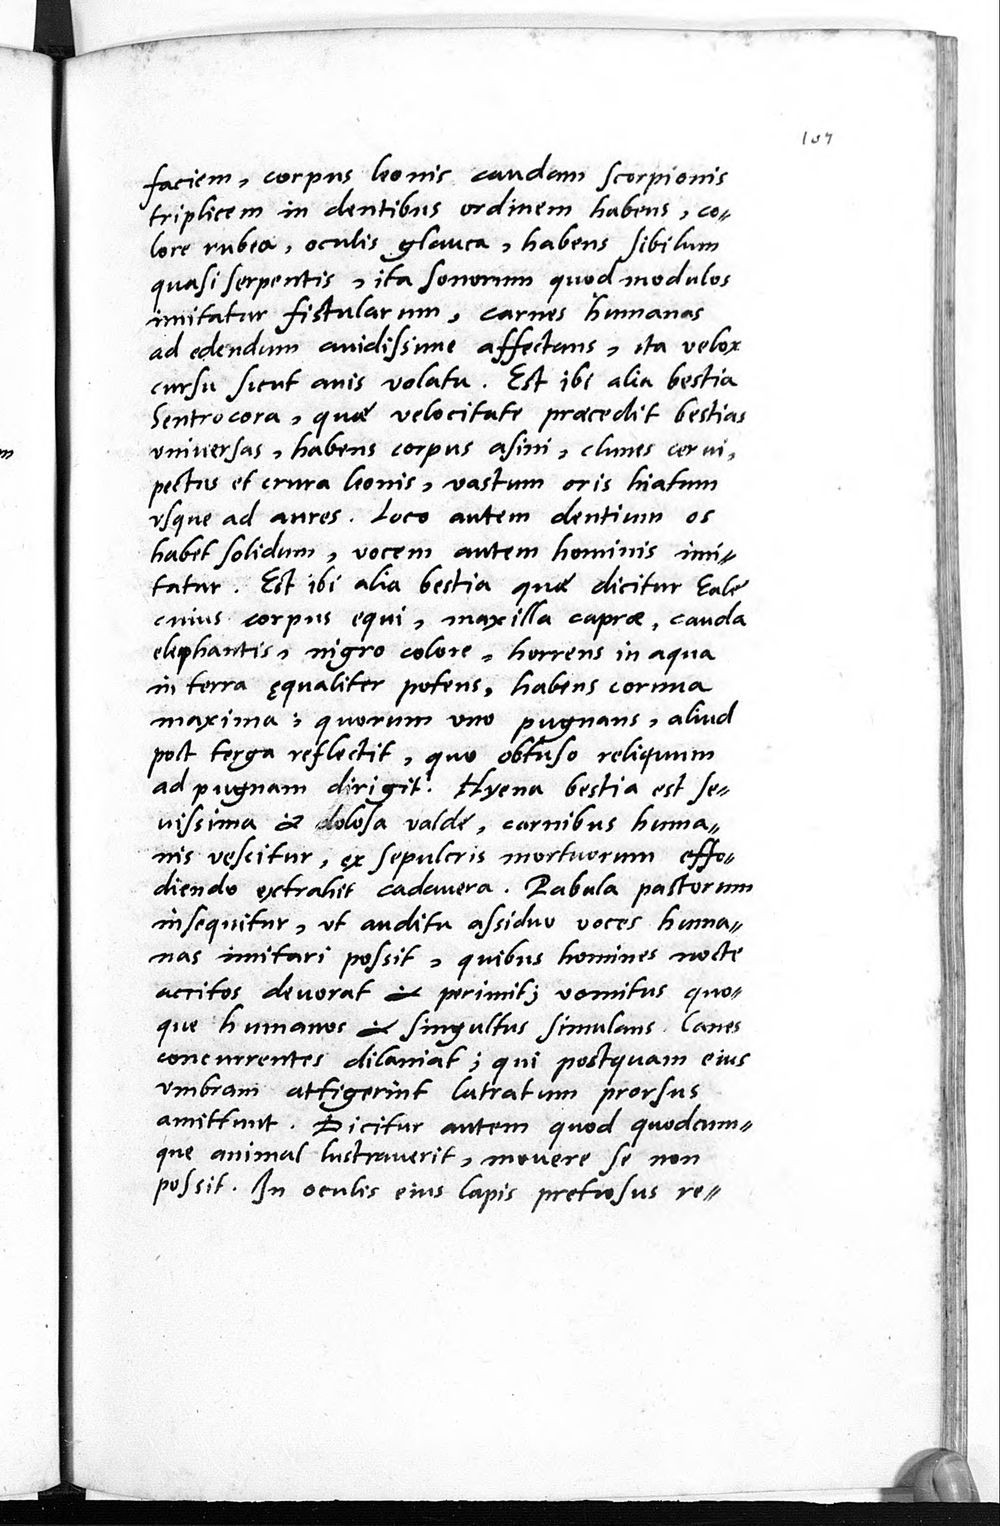 107
faciem, corpus leonis caudam scorpionis
triplicem in dentibus ordinem habens, co„
lore rubea, oculis glauca, habens sibilum
quasi serpentis, ita sonorum quod modulos
imitatur fistularum, carnes humanas
ad edendum auidissime affectans, ita velox
cursu sicut auis volatu. Est ibi alia bestia
Sentrocora, quæ velocitate præcedit bestias
vniuersas, habens corpus asini, clunes cerui,
pectus et crura leonis, vastum oris hiatum
vsque ad aures. Loco autem dentium os
habet solidum, vocem autem hominis imi„
tatur. Est ibi alia bestia quæ dicitur Eale
cuius corpus equi, maxilla capræ, cauda
elephantis, nigro colore, horrens in aqua
in terra ęqualiter potens, habens cornua
maxima; quorum vno pugnans, aliud
post terga reflectit, quo obtuso reliquum
ad pugnam dirigit. Hyena bestia est se„
uissima & dolosa valde, carnibus huma„
nis vescitur, ex sepulcris mortuorum effo„
diendo extrahit cadauera. Pabula pastorum
insequitur, vt auditu assiduo voces huma„
nas imitari possit, quibus homines nocte
accitos deuorat & perimit; vomitus quo„
que humanos & singultus simulans. Canes
concurrentes dilaniat; qui postquam eius
vmbram attigerint latratum prorsus
amittunt. Dicitur autem quod quodcum„
que animal lustrauerit, mouere se non
possit. In oculis eius lapis pretiosus re„